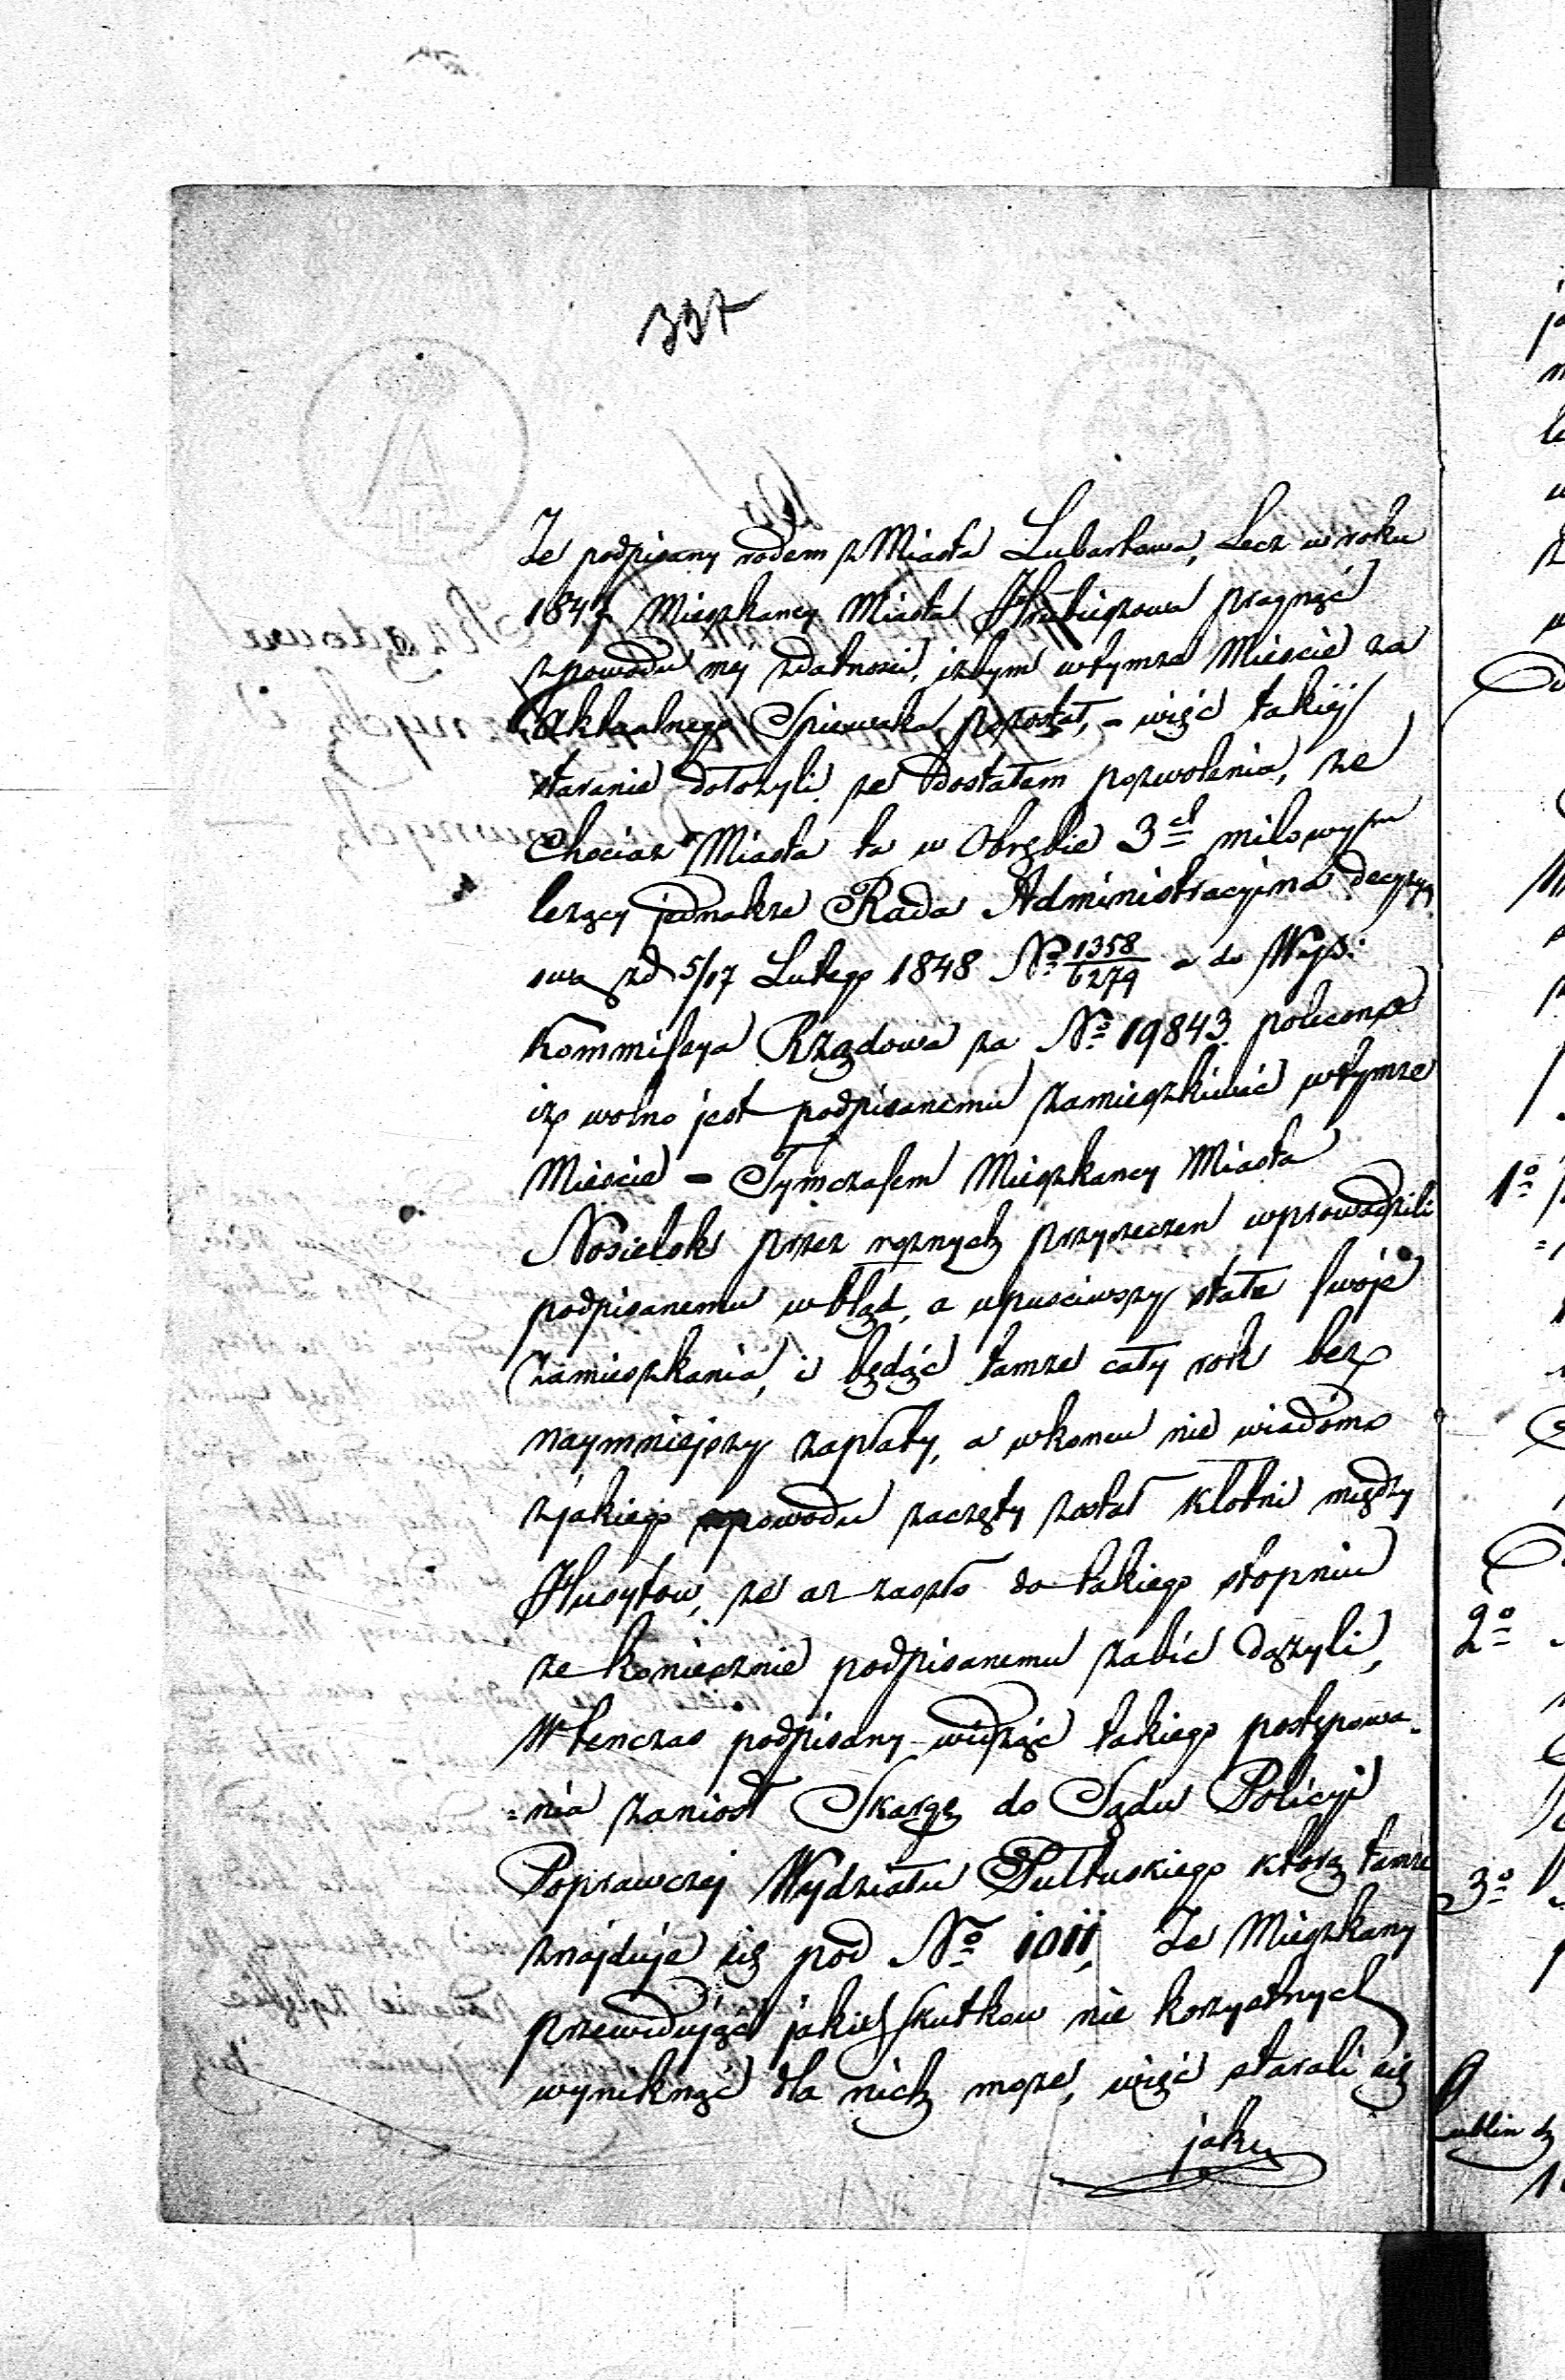 337
Że podpisany rodem z Miasta Lubartowa, Lecz w roku
1847 Mieszkancy Miasta Hrubieszowa pragnąć
z powodu mej zdatności, iżbym w tymza Mieście za
Aktualnego Spiewaka pozostał, - więć takiéj
staranie dołożyli że dostałem pozwolenia, że
Chociaz Miasta ta w Obrębie 3ch milowym
lezący jednakże Rada Administracyina decyzyą
swą zd 5/17 Lutego 1848 No 1358/6279 a do Wyż:
Kommissya Rządowa za No 19843 policone
iż wolno jest podpisanemu zamieszkiwać w tymze
Mieście - Tymczasem Mieszkancy Miasta
Nosielsk przez rożnych przyrzeczen wprowadzili
podpisanemu w błąd, a upusciwszy stałe swoje
Zamieszkania, i będąć tamże cały rok bez
naymniejszy zapłaty, a wkoncu nie wiadomo
zjakiego powodu zaczęty został kłotni między
Husytow, że aż zaszło do takiego stopniu
że koniecznie podpisanemu zabić dążyli,
W tenczas podpisany widząć takiego postępowa-
=nia zaniosł Skargę do Sądu Policyi
Poprawczej Wydziału Pułtuskiego ktorą tamże
znajduje się pod No 1011, Że Mieszkany
przewidująć jakich skutkow nie korzystnych
wyniknąć dla nich może, więć starali się
jaky
1o
2o
3o
Lublin d